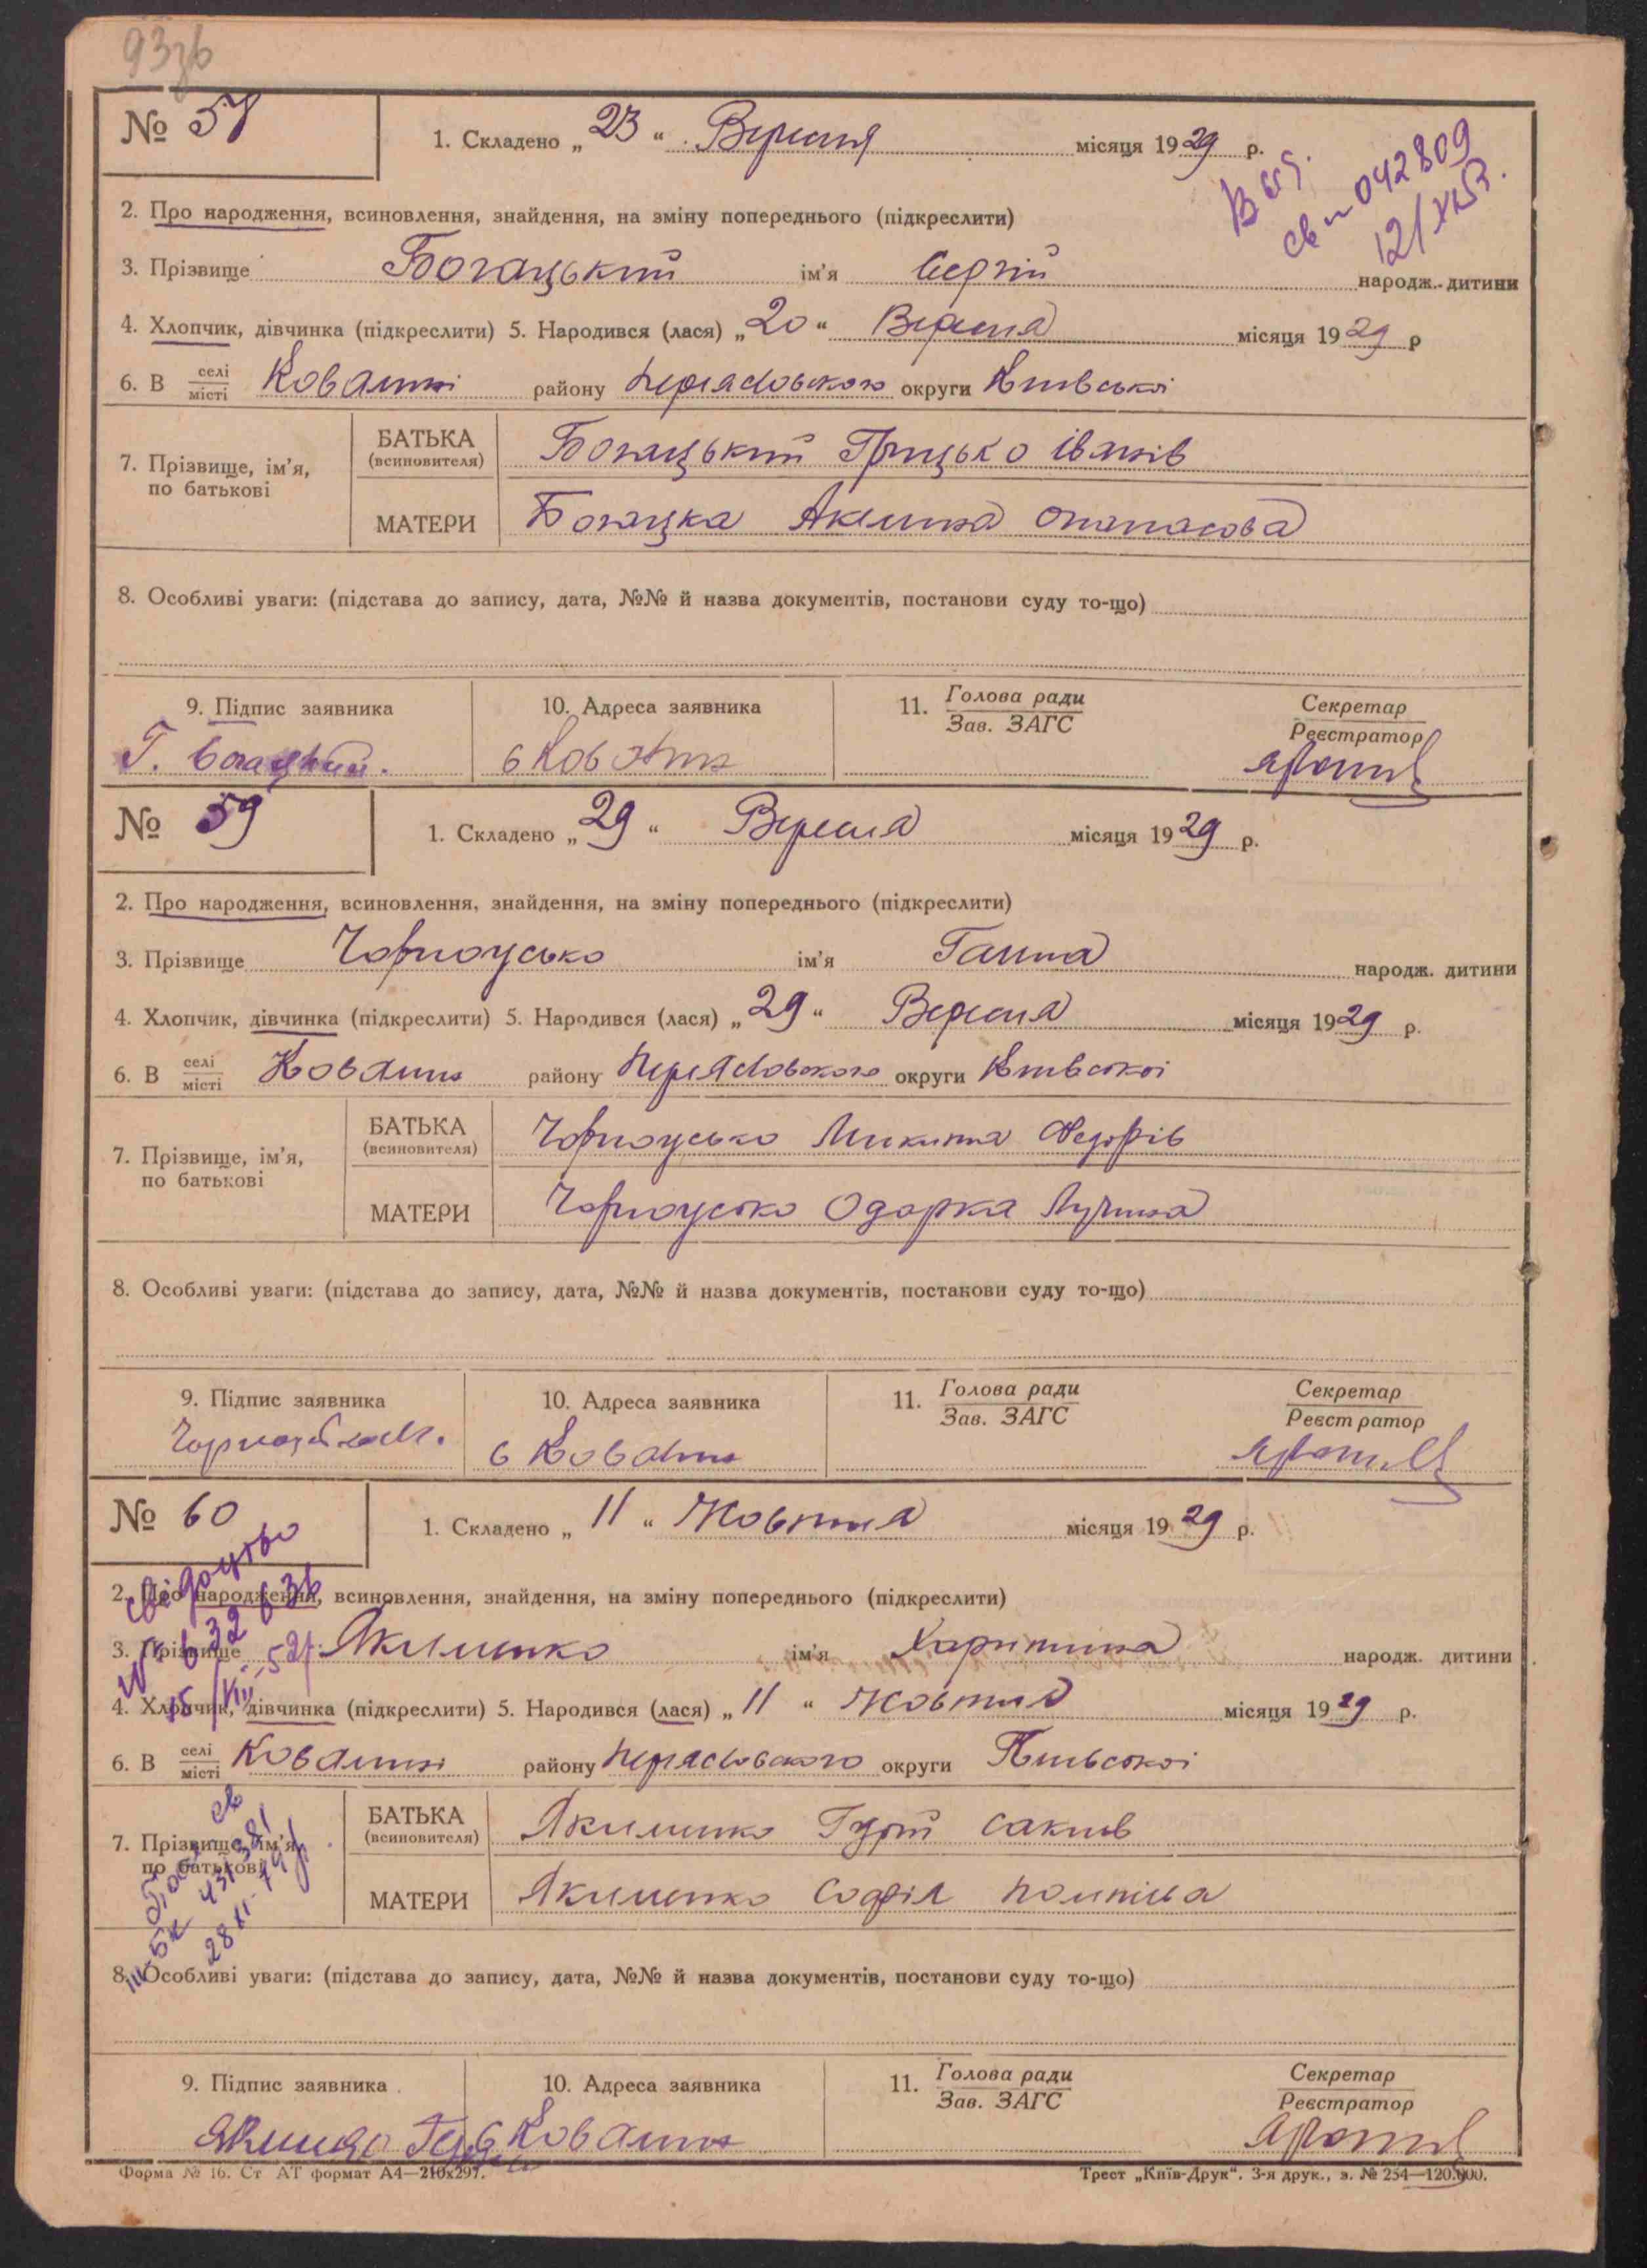 93зв
№ 58
1. Складено „ 23 “ Вересня місяця 19 29 р.
Вид.
св 042809
12/XI
2. Про народження, всиновлення, знайдення, на зміну попереднього (підкреслити)
3. Прізвище Богацький ім'я Сергій народж. дитини
4. Хлопчик, дівчинка (підкреслити) 5. Народився (лася) „ 20 “ Вересня місяця 19 29 р
6. В селі місті Ковалині району Переяславського округи Київської
7. Прізвище, ім'я, по батькові
БАТЬКА (всиновителя) Богацький Грицько Іванів
МАТЕРИ Богацка Акелина Опанасова
8. Особливі уваги: (підстава до запису, дата, №№ й назва документів, постанови суду то-що)
9. Підпис заявника 10. Адреса заявника 11. Голова ради Зав. ЗАГС Секретар Реєстратор
Г. Богацкий. с Ковалин
№ 59
1. Складено „ 29 “ Вересня місяця 19 29 р.
2. Про народження, всиновлення, знайдення, на зміну попереднього (підкреслити)
3. Прізвище Чорноусько ім'я Ганна народж. дитини
4. Хлопчик, дівчинка (підкреслити) 5. Народився (лася) „ 29 “ Вересня місяця 19 29 р.
6. В селі місті Ковалин району Переяславського округи Київської
7. Прізвище, ім'я, по батькові
БАТЬКА (всиновителя) Чорноусько Микита Федорів
МАТЕРИ Чорноусько Одарка Лучина
8. Особливі уваги: (підстава до запису, дата, №№ й назва документів, постанови суду то-що)
9. Підпис заявника 10. Адреса заявника 11. Голова ради Зав. ЗАГС Секретар Реєстратор
с Ковалин
№ 60
1. Складено „ 11 “ Жовтня місяця 19 29 р.
свідоцтво
15/VIII-52р
2. Про народження, всиновлення, знайдення, на зміну попереднього (підкреслити)
3. Прізвище Якименко ім'я Харитина народж. дитини
4. Хлопчик, дівчинка (підкреслити) 5. Народився (лася) „ 11 “ Жовтня місяця 19 29 р.
6. В селі місті Ковалині району Переяславського округи Київської
7. Прізвище, ім'я, по батькові
БАТЬКА (всиновителя) Якименко Гурій Саків
МАТЕРИ Якименко Софія
III-БК 431381
28 XI-79р
8. Особливі уваги: (підстава до запису, дата, №№ й назва документів, постанови суду то-що)
9. Підпис заявника 10. Адреса заявника 11. Голова ради Зав. ЗАГС Секретар Реєстратор
с Ковалин
Форма № 16. Ст АТ формат А4—210х297. Трест „Київ-Друк“. 3-я друк., з. № 254—120.000.